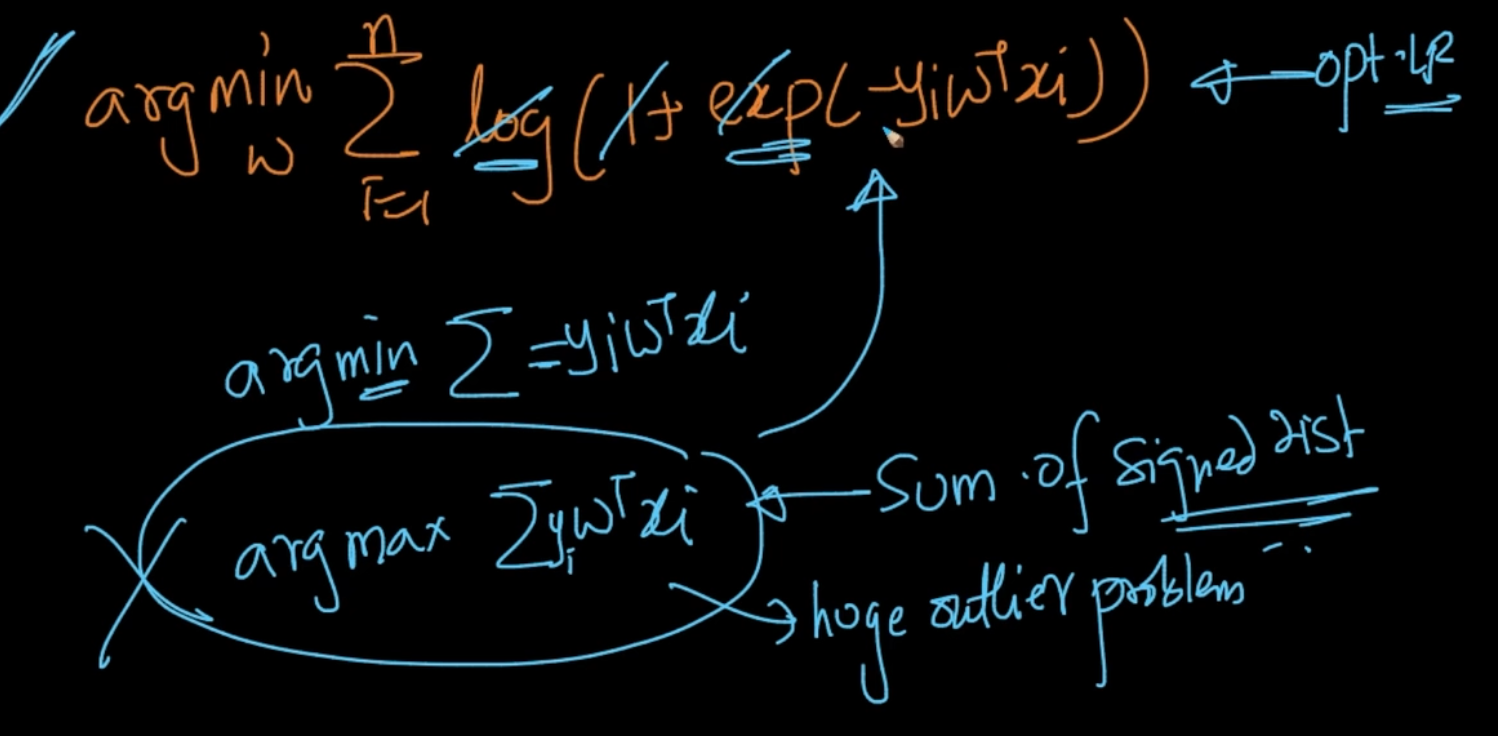 arg min_w Σ_{i=1}^{n} log(1 + exp(-yiwᵀxi)) ← opt·LR
arg min Σ =yiwᵀxi
arg max Σyiwᵀxi ← Sum of signed dist
→ huge outlier problem